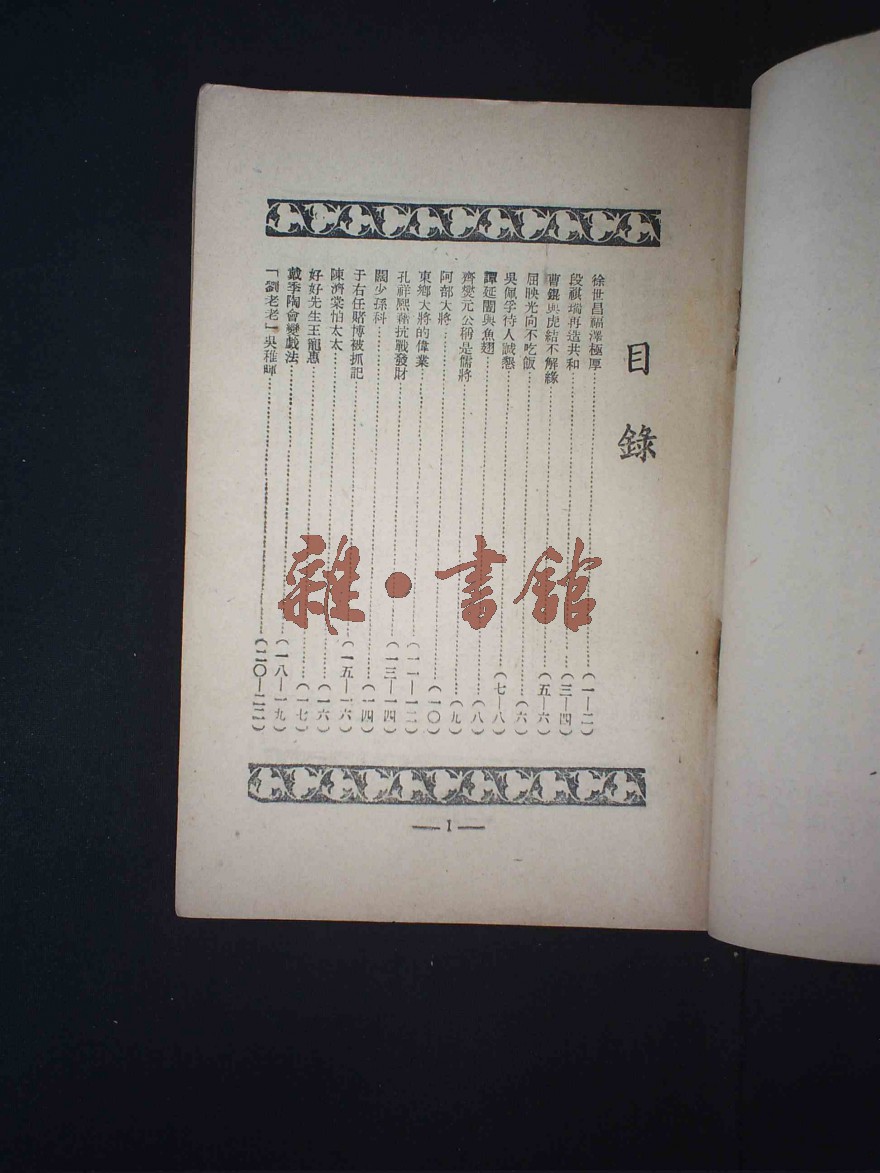 目錄
徐世昌福澤極厚（一—二）
段祺瑞再造共和（三—四）
曹錕與虎結不解緣（五—六）
屈映光向不吃飯（六）
吳佩孚待人誠懇（七—八）
譚延闓與魚翅（八）
齊燮元公稱是儒將（九）
阿部大將（一〇）
東鄉大將的偉業（一一—一二）
孔祥熙靠抗戰發財（一三—一四）
闊少孫科（一四）
于右任賭博被抓記（一五—一六）
陳濟棠怕太太（一六）
好好先生王寵惠（一七）
戴季陶會變戲法（一八—一九）
「劉老老」吳稚暉（二〇—二二）
— 1 —
雜·書館